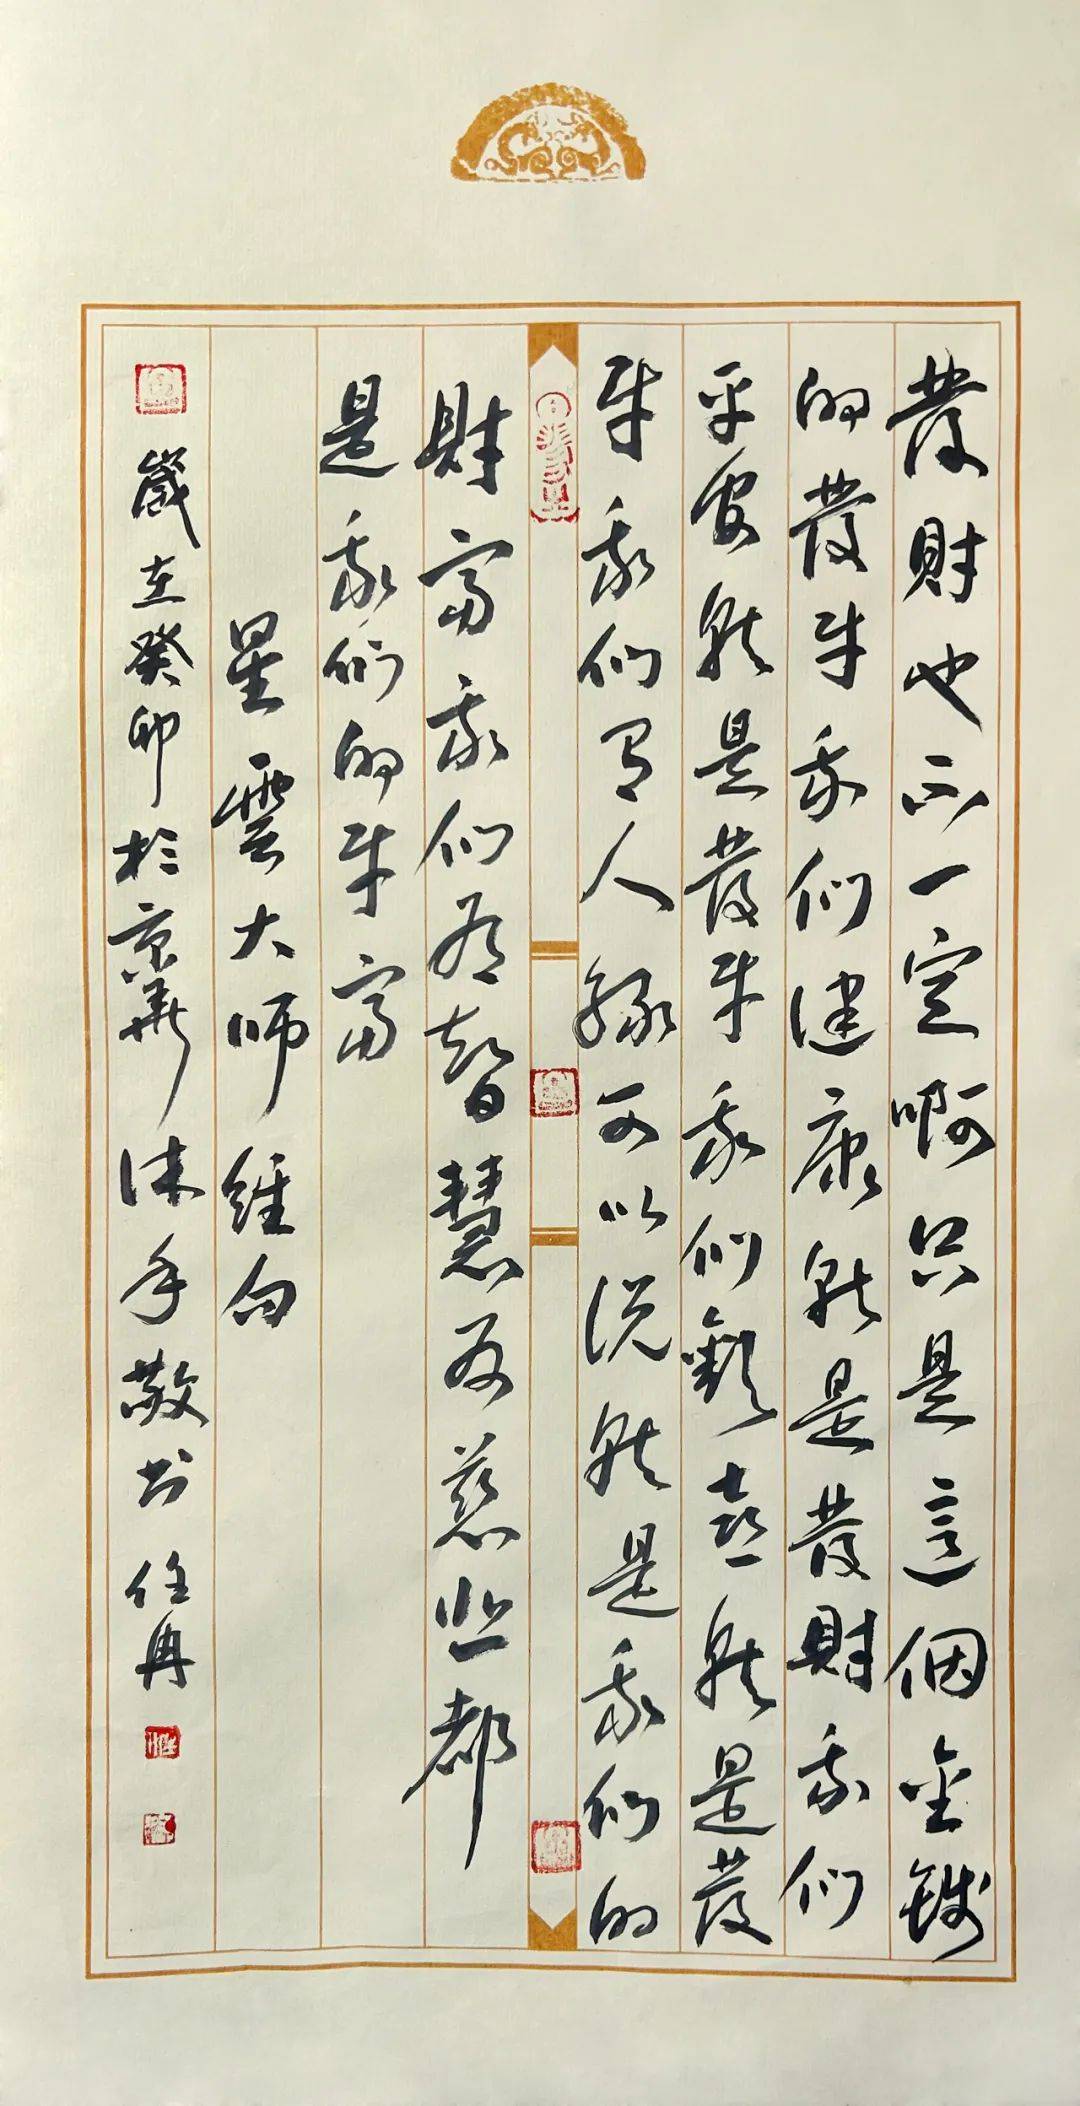 發財也不一定啊只是這個金錢
的發財我們健康就是發財我們
平安就是發財我們歡喜就是發
財我們有人緣可以說就是我們的
財富我們有智慧有慈悲都
是我們的財富
星雲大師經句
歲在癸卯於京華沐手敬書任冉